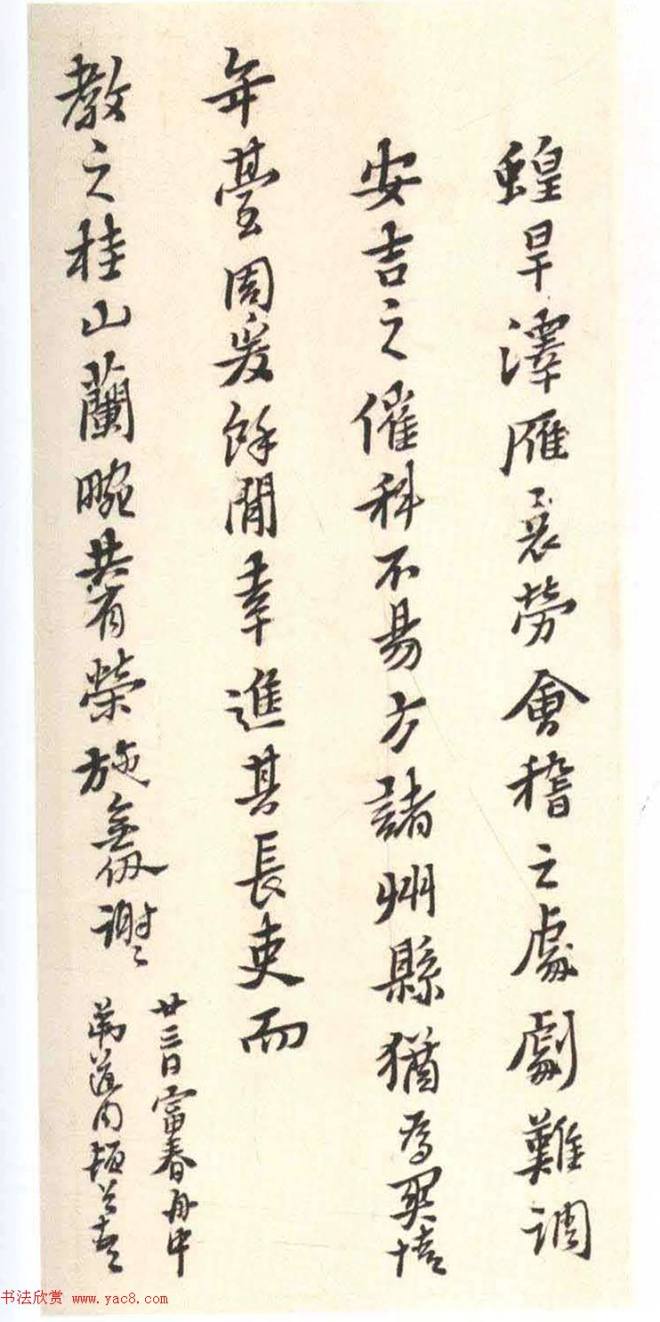 蝗旱澤雁哀勞會稽之處劇難調
安吉之催科不易方諸州縣猶為關情
年臺周爰餘閒幸進其長吏而
教之桂山蘭畹共有榮施無
謝〻
廿三日富春舟中
道周頓首
书法欣赏 www.yac8.com